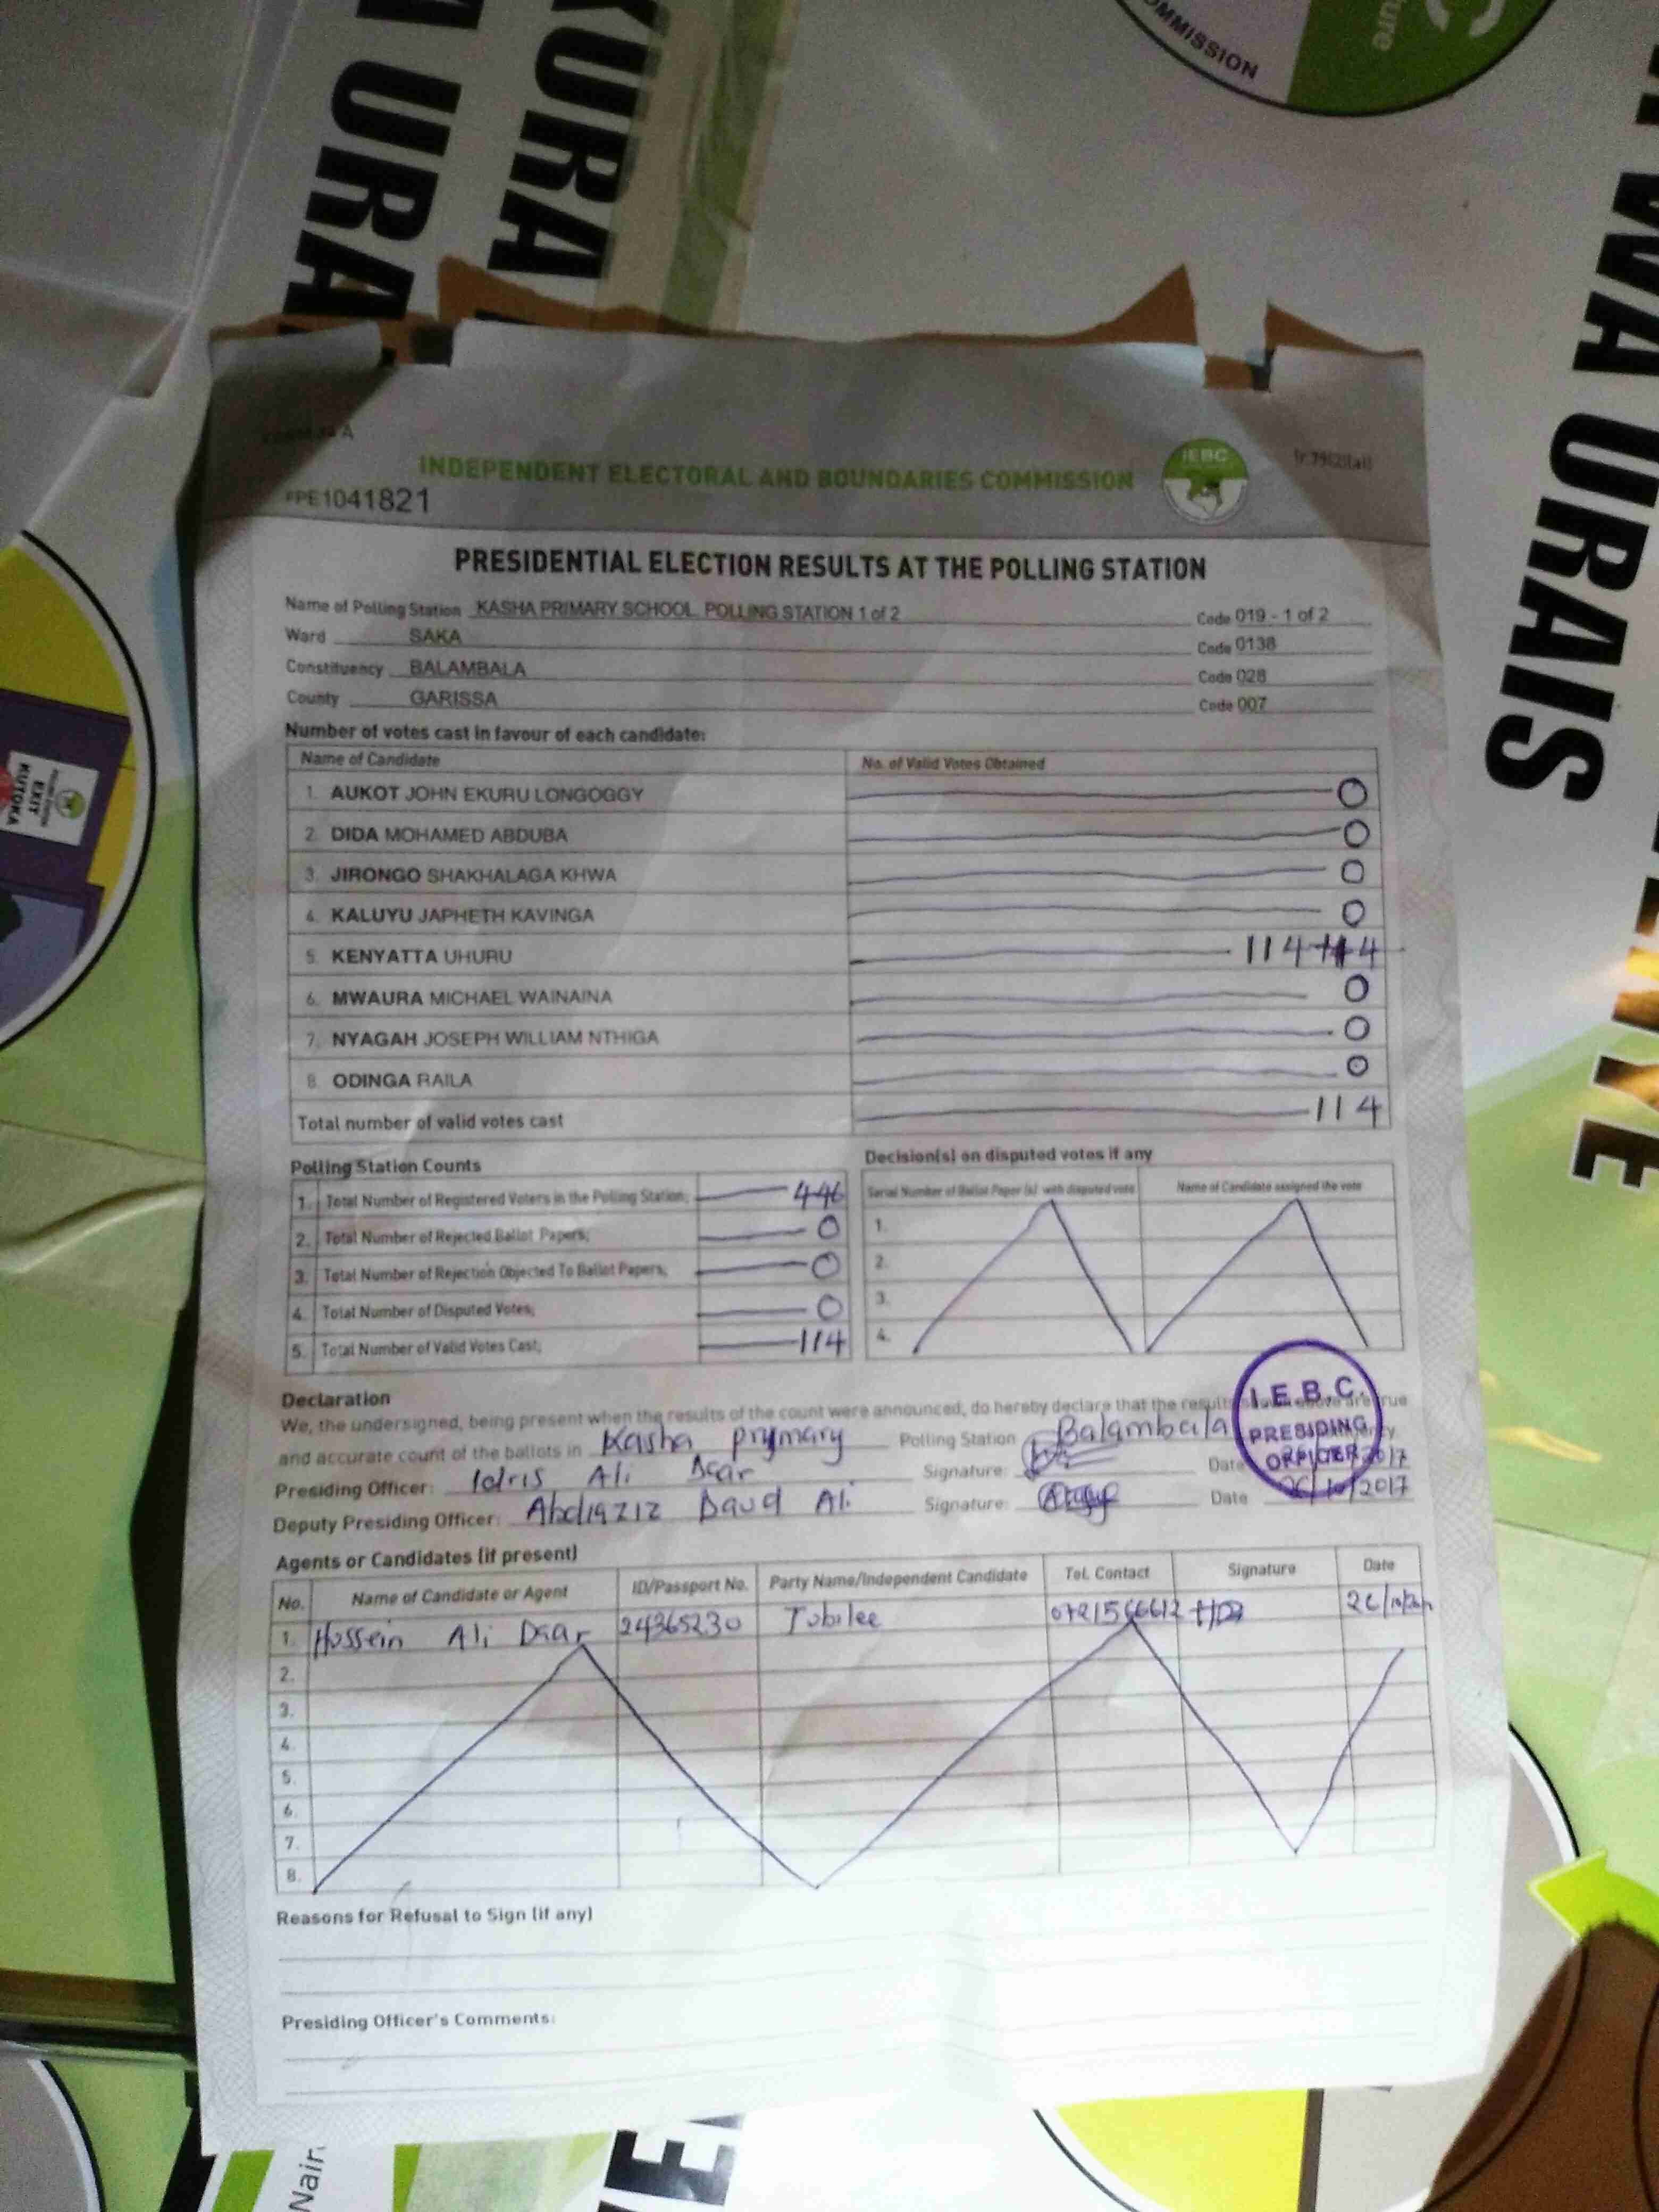 KURA
URA
URA
URA
MMISSION
ture
WA URAIS
INDEPENDENT ELECTORAL AND BOUNDARIES COMMISSION
IEBC
PE1041821
PRESIDENTIAL ELECTION RESULTS AT THE POLLING STATION
Name of Polling Station KASHA PRIMARY SCHOOL POLLING STATION 1 of 2 Code 019 - 1 of 2
Ward SAKA Code 0138
Constituency BALAMBALA Code 028
County GARISSA Code 007
Number of votes cast in favour of each candidate:
Name of Candidate No. of Valid Votes Obtained
1. AUKOT JOHN EKURU LONGOGGY 0
2. DIDA MOHAMED ABDUBA 0
3. JIRONGO SHAKHALAGA KHWA 0
4. KALUYU JAPHETH KAVINGA 0
5. KENYATTA UHURU 114 114
6. MWAURA MICHAEL WAINAINA 0
7. NYAGAH JOSEPH WILLIAM NTHIGA 0
8. ODINGA RAILA 0
Total number of valid votes cast 114
Polling Station Counts
1. Total Number of Registered Voters in the Polling Station; 446
2. Total Number of Rejected Ballot Papers; 0
3. Total Number of Rejection Objected To Ballot Papers; 0
4. Total Number of Disputed Votes; 0
5. Total Number of Valid Votes Cast; 114
Decision(s) on disputed votes if any
Serial Number of Ballot Paper (s) with disputed vote Name of Candidate assigned the vote
1.
2.
3.
4.
Declaration
We, the undersigned, being present when the results of the count were announced, do hereby declare that the results
and accurate count of the ballots in Kasha prymary Polling Station Balambala
I.E.B.C.
PRESIDING
OFFICER
Presiding Officer: Idris Ali Daar Signature: Date 2017
Deputy Presiding Officer: Abdiaziz Daud Ali Signature: Date 26/10/2017
Agents or Candidates (if present)
No. Name of Candidate or Agent ID/Passport No. Party Name/Independent Candidate Tel. Contact Signature Date
1. Hussein Ali Daar 24365230 Jubilee 0721566612
2.
3.
4.
5.
6.
7.
8.
Reasons for Refusal to Sign (if any)
Presiding Officer's Comments:
EXIT
KUTOKA